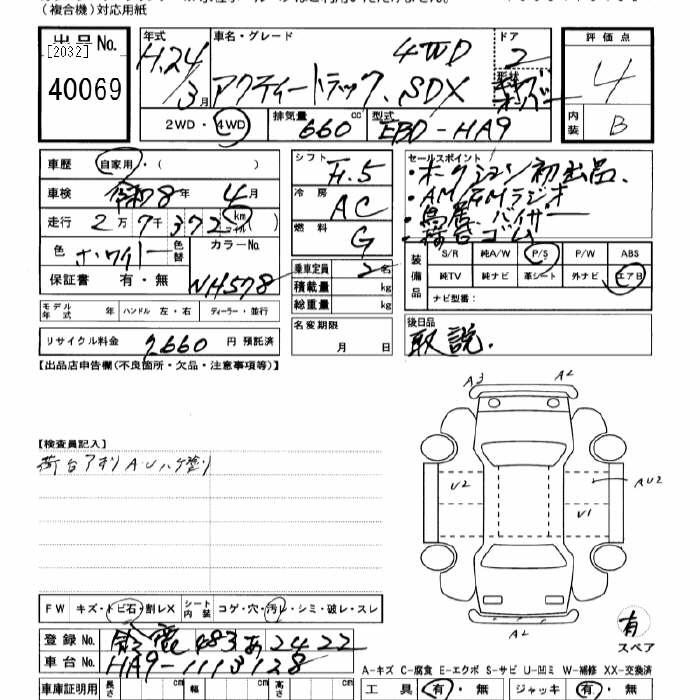 (複合機)対応用紙
出品No.
[2032]
40069
年式 H.24/3月
車名・グレード 4WD
アクティートラック、SDX
ドア 2
形状
2WD・4WD
排気量 660 cc
型式 EBD-HA9
評価点 4
内装 B
車歴 自家用・( )
車検 令和8年4月
走行 2万7千372 km マイル( )
色 ホワイト 色替
カラーNo. NH578
保証書 有・無
シフト F.5
冷房 AC
燃料 G
乗車定員 2名
積載量 kg
総重量 kg
セールスポイント
・オークション初出品、
・AM/FMラジオ
・鳥居、バイザー
・荷台ゴム
装備品 S/R 純A/W P/S P/W ABS
純TV 純ナビ 革シート 外ナビ エアB
ナビ型番:
モデル年式 年 ハンドル 左・右 ディーラー・並行
リサイクル料金 7,660 円 預託済
名変期限 月 日
後日品
取説.
【出品店申告欄(不良箇所・欠品・注意事項等)】
A3 A2
【検査員記入】
荷台アオリ AUハケ塗り
U2 AU2
U1
A2
FW キズ・トビ石・割レX シート内装 コゲ・穴・汚レ・シミ・破レ・スレ
登録No. 鈴鹿 483 あ 2422
車台No. HA9-1113128
有
スペア
A-キズ C-腐食 E-エクボ S-サビ U-凹ミ W-補修 XX-交換済
車庫証明用 長さ cm 幅 cm 高さ cm
工具 有・無 ジャッキ 有・無